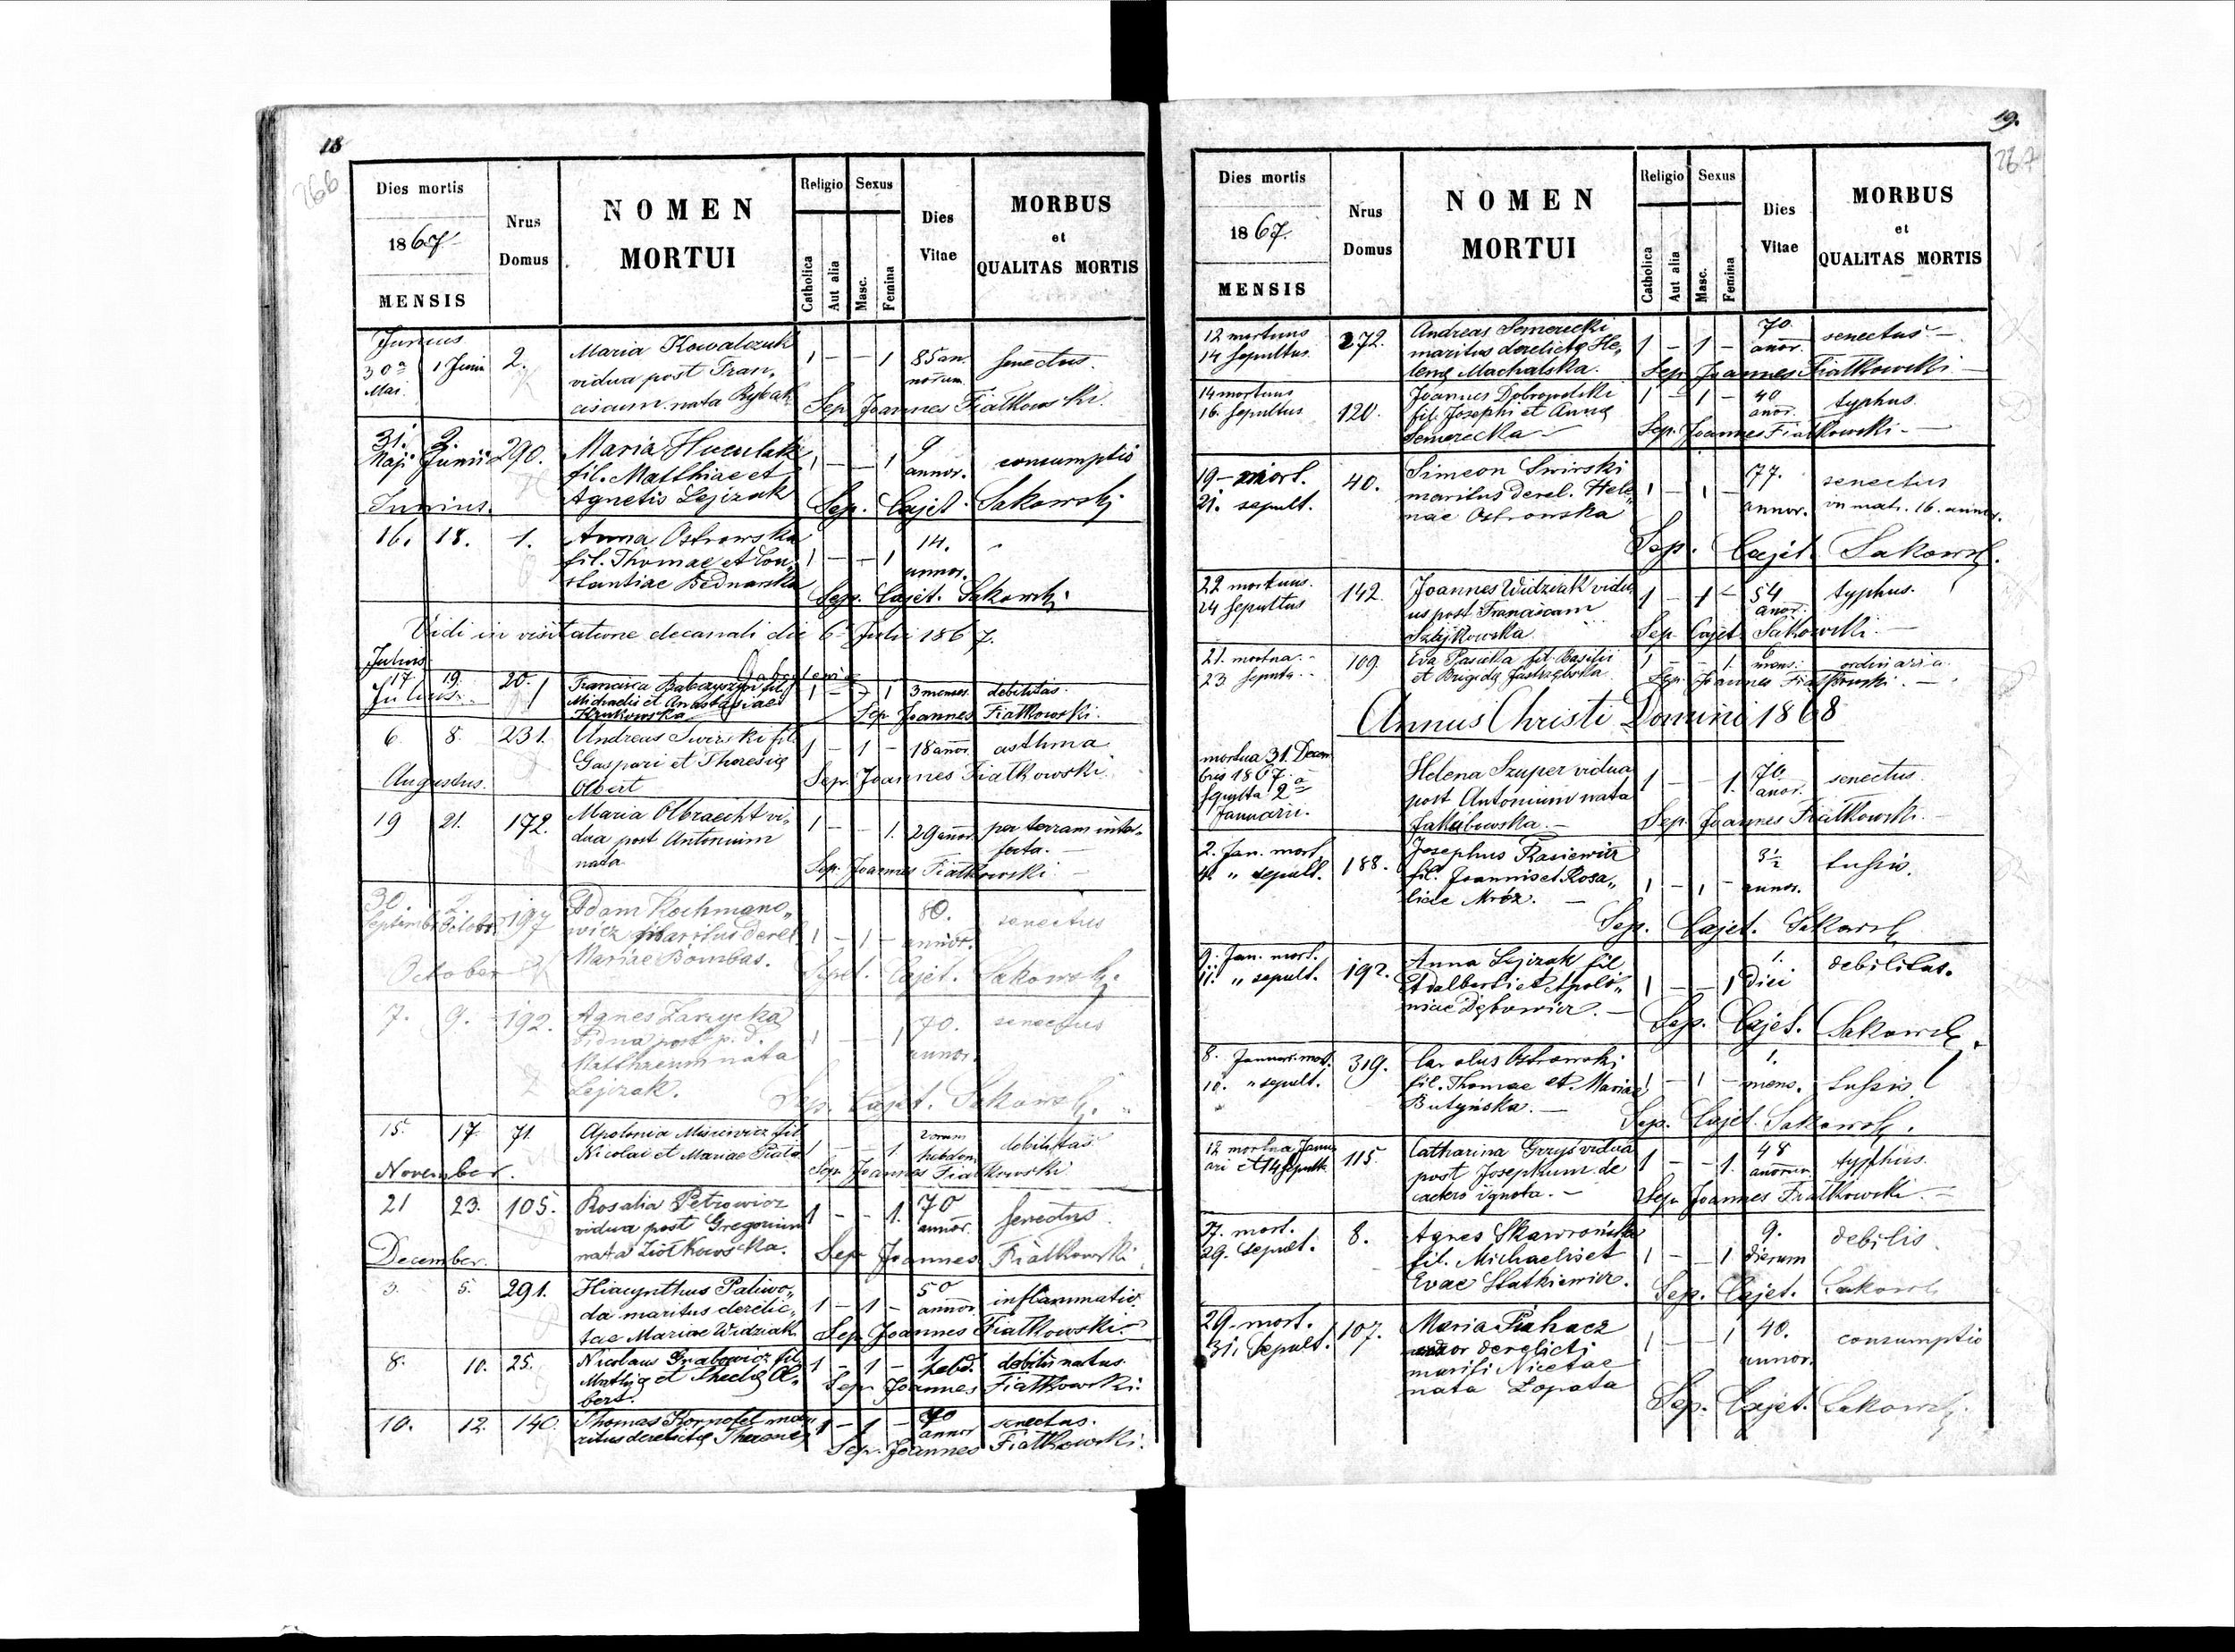 18
266
Dies mortis
1867
MENSIS
Nrus
Domus
NOMEN
MORTUI
Religio
Sexus
Catholica
Aut alia
Masc.
Femina
Dies
Vitae
MORBUS
et
QUALITAS MORTIS
Junius
30a Mai. 1 Junii 2. Maria Kowalczuk 1 — — 1 85 an senectus.
vidua post Fran„ norum
ciscum nata Rybak Sep. Joannes Fiatkowski.
31. 2. 290. Maria Huculak 1 — — 1 9 consumptio
Maji Junii fil. Matthiae et annor.
Junius. Agnetis Lejzak Sep. Cajet. Sakowski
16. 18. 1. Anna Ostrowska 1 — — 1 14.
fil. Thomae et Con„ annor.
stantiae Bednarska Sep. Cajet. Sakowski
Vidi in visitatione decanali die 6 Julii 1867.
Julius
17 19. 20. Francisca Babczyszyn fil. 1 — — 1 3 menses debilitas.
Julius. Michaelis et Anastasiae
Krukowska Sep Joannes Fiatkowski.
6. 8. 231. Andreas Swirski fil. 1 — 1 — 18 annor. asthma
Gaspari et Theresię
Augustus. Olbert Sep. Joannes Fiatkowski.
19 21. 172. Maria Olbracht vi„ 1 — — 1. 29 annor per terram inter„
dua post Antonium fecta. —
nata Sep. Joannes Fiatkowski —
30. 2. 197 Adam Kochmano„ 1 — 1 — 80. senectus
Septembr. Octobr. wicz maritus derel. annor.
October Mariae Bombas. Sepel. Cajet. Sakowski.
7. 9. 192. Agnes Zarzycka 1 — — 1 70. senectus
Vidua post p. d. annor.
Matthaeum nata
Lejzak. Sep. Cajet. Sakowski.
15. 17. 71. Apolonia Misiewicz fil. 1 — — 1. 2orum debilitas
Nicolai et Mariae hebdom.
November. Sep. Joannes Fiatkowski
21 23. 105. Rosalia Petrowicz 1 — — 1. 70 senectus.
vidua post Gregorium annor.
December. nata Ziółkowska. Sep. Joannes Fiatkowski
3. 5. 291. Hiacynthus Paliwo„ 1 — 1 — 50 inflammatio
da maritus derelic„ annor.
tae Mariae Widziak Sep. Joannes Fiatkowski.
8. 10. 25. Nicolaus Grabowicz fil. 1 — 1 — 1 hebd. debilis natus.
Mathię et Theclę Ol„ Sep. Joannes Fiatkowski.
bert.
10. 12. 140. Thomas mar„ 1 — 1 — 70 senectus.
ritus derelictę annor
Sep. Joannes Fiatkowski.
19.
267
Dies mortis
1867.
MENSIS
Nrus
Domus
NOMEN
MORTUI
Religio
Sexus
Catholica
Aut alia
Masc.
Femina
Dies
Vitae
MORBUS
et
QUALITAS MORTIS
12 mortuus 272. Andreas Semerecki 1 — 1 — 70 senectus —
14 sepultus maritus derelictę He„ annor.
lenę Machalska. Sep. Joannes Fiatkowski —
14 mortuus 120. Joannes Dobropolski 1 — 1 — 40 typhus.
16. sepultus fil. Josephi et Annę anor.
Semerecka — Sep. Joannes Fiatkowski —
19 — mort. 40. Simeon Swirski 1 — 1 — 77. senectus
21. sepult. maritus derel. Hele„ annor. in matr. 16. annor.
nae Ostrowska
Sep. Cajet. Sakowsk.
22 mortuus. 142. Joannes Widziak vidu„ 1 — 1 — 54 typhus.
24 sepultus us post Franciscam anor.
Szajkowska Sep. Cajet. Sakowski —
21. mortua. 109. Eva fil. Basilii 1 — — 1. 6 mens. ordinaria
23. sepulta et Brigidę Jastrzębska Sep. Joannes Fiatkowski. —
Annus Christi Domini 1868
mortua 31. Decem
bris 1867. Helena Szuper vidua 1 — — 1. 70. senectus.
sepulta 2a post Antonium nata anor.
Januarii. Jakubowska. — Sep. Joannes Fiatkowski. —
2. Jan. mort. 188. Josephus Rasiewicz 1 — 1 — 3½ tussis.
4. „ sepult. fil. Joannis et Rosa„ annor.
liae Mróz. — Sep. Cajet. Sakowsk
9. Jan. mort. 192. Anna Lejzak fil. 1 — — 1 1. debilitas.
11. „ sepult. Adalberti et Apolo„ diei
niae Dębowicz. — Sep. Cajet. Sakowsk.
8. Januar. mort. 319. Carolus Ostrowski 1 — 1 — 1. tussis
10. „ sepult. fil. Thomae et Mariae mens.
Butyńska. — Sep. Cajet. Sakowsk.
12 mortua Janu„ 115. Catharina Grzyś vidua 1 — — 1. 48 typhus.
ari et 14 sepult. post Josephum de annorum
caetero ignota. — Sep. Joannes Fiatkowski. —
27. mort. 8. Agnes Skawrońska 1 — — 1 9. debilis
29. sepult. fil. Michaelis et dierum
Evae Statkiewicz. Sep. Cajet. Sakowsk
29. mort. 107. Maria 1 — — 1 40. consumptio
31. Sepult. uxor derelicti annor.
mariti Nicetae
nata Łopata Sep. Cajet. Sakowsk.